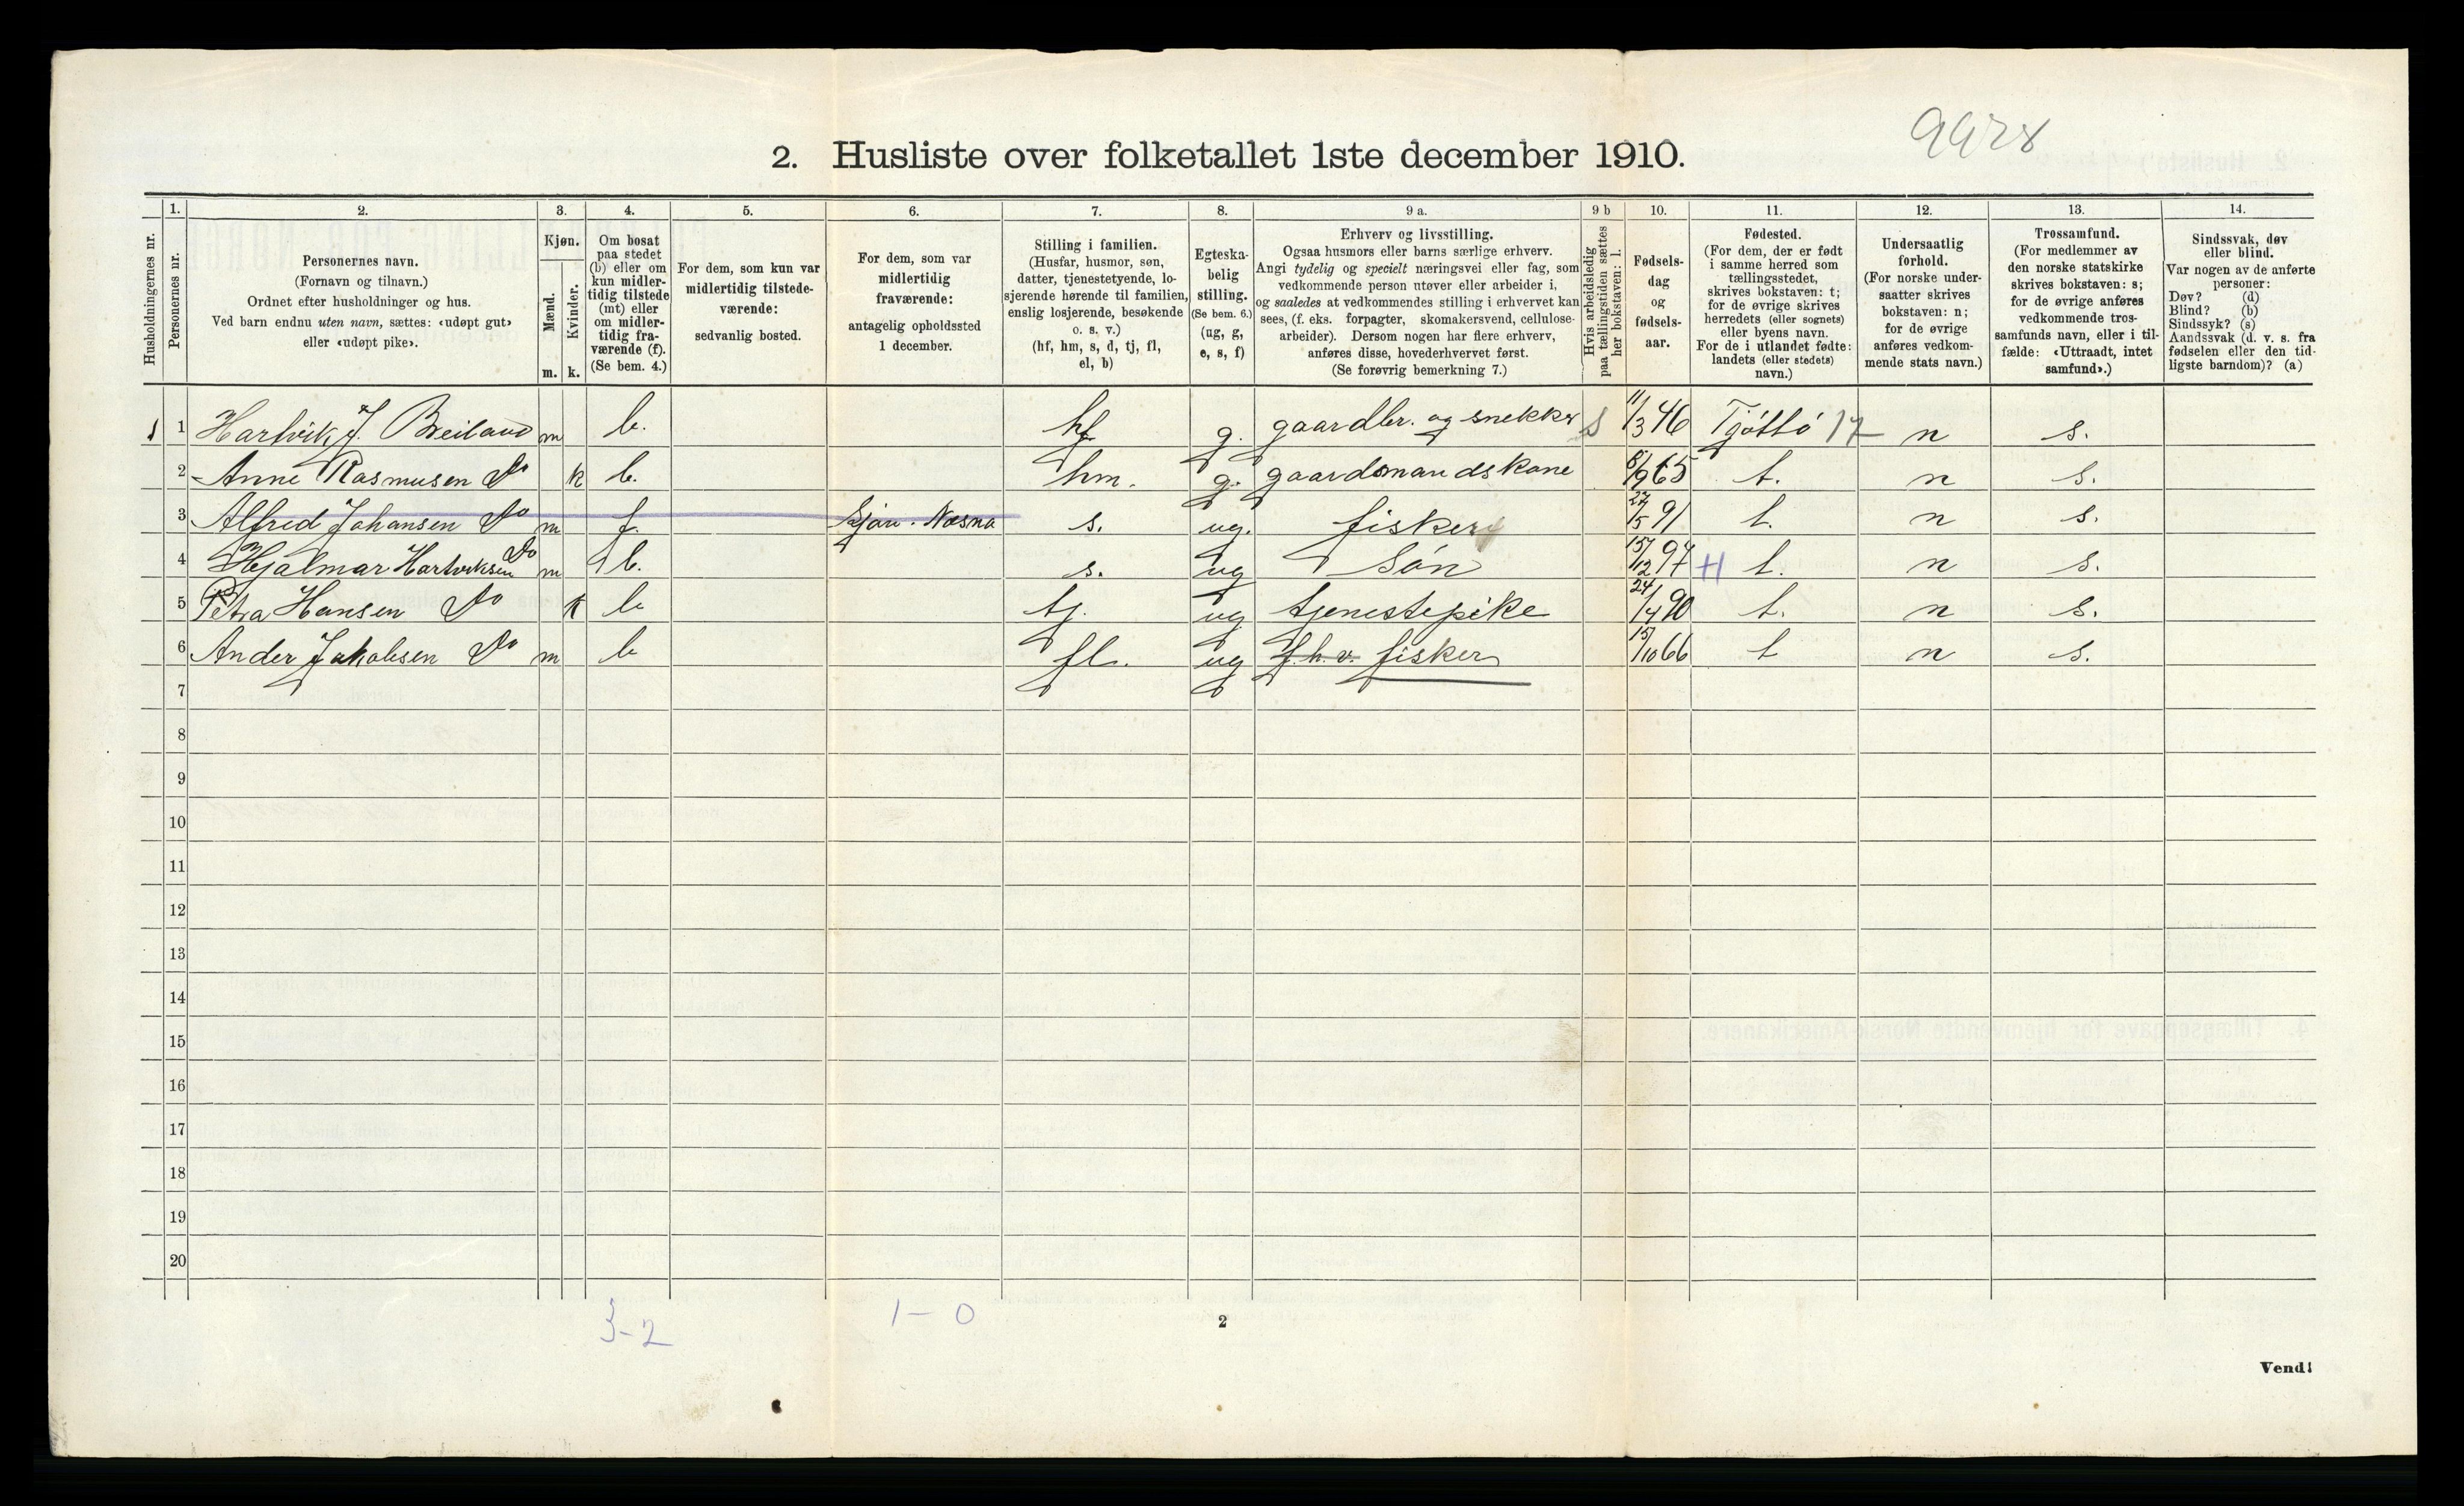 2. Husliste over folketallet 1ste december 1910.
Husholdningernes nr.
1. Personernes nr.
2.
Personernes navn.
(Fornavn og tilnavn.)
Ordnet efter husholdninger og hus.
Ved barn endnu uten navn, sættes: «udøpt gut»
eller «udøpt pike».
3.
Kjøn.
Mænd.
Kvinder.
m. k.
4.
Om bosat
paa stedet
(b) eller om
kun midler-
tidig tilstede
(mt) eller
om midler-
tidig fra-
værende (f).
(Se bem. 4.)
5.
For dem, som kun var
midlertidig tilstede-
værende:
sedvanlig bosted.
6.
For dem, som var
midlertidig
fraværende:
antagelig opholdssted
1 december.
7.
Stilling i familien.
(Husfar, husmor, søn,
datter, tjenestetyende, lo-
sjerende hørende til familien,
enslig losjerende, besøkende
o. s. v.)
(hf, hm, s, d, tj, fl,
el, b)
8.
Egteska-
belig
stilling.
(Se bem. 6.)
(ug, g,
e, s, f)
9 a.
Erhverv og livsstilling.
Ogsaa husmors eller barns særlige erhverv.
Angi tydelig og specielt næringsvei eller fag, som
vedkommende person utøver eller arbeider i,
og saaledes at vedkommendes stilling i erhvervet kan
sees, (f. eks. forpagter, skomakersvend, cellulose-
arbeider). Dersom nogen har flere erhverv,
anføres disse, hovederhvervet først.
(Se forøvrig bemerkning 7.)
9 b
Hvis arbeidsledig
paa tællingstiden sættes
her bokstaven: l.
10.
Fødsels-
dag
og
fødsels-
aar.
11.
Fødested.
(For dem, der er født
i samme herred som
tællingsstedet,
skrives bokstaven: t;
for de øvrige skrives
herredets (eller sognets)
eller byens navn.
For de i utlandet fødte:
landets (eller stedets)
navn.)
12.
Undersaatlig
forhold.
(For norske under-
saatter skrives
bokstaven: n;
for de øvrige
anføres vedkom-
mende stats navn.)
13.
Trossamfund.
(For medlemmer av
den norske statskirke
skrives bokstaven: s;
for de øvrige anføres
vedkommende tros-
samfunds navn, eller i til-
fælde: «Uttraadt, intet
samfund».)
14.
Sindssvak, døv
eller blind.
Var nogen av de anførte
personer:
Døv? (d)
Blind? (b)
Sindssyk? (s)
Aandssvak (d. v. s. fra
fødselen eller den tid-
ligste barndom)? (a)
1 1 Hartvik J. Breiland m b. hf g. gaardbr. og snekker S 11/3 46 Tjøttø 17 n s.
2 Anne Rasmusen Do k b. hm. g. gaardsmandskone 8/9 65 t. n s.
3 Alfred Johansen Do m f. Næsna s. ug. fisker 27/5 91 t. n s.
4 Hjalmar Hartviksen Do m b. s. ug Søn 15/12 97 H t. n s.
5 Petra Hansen Do k b tj. ug tjenestepike 24/4 90 t. n s.
6 Ander Jakobsen Do m b fl. ug f.h.v. fisker 15/10 66 t n s.
7
8
9
10
11
12
13
14
15
16
17
18
19
20
3-2
1-0
2
Vend!